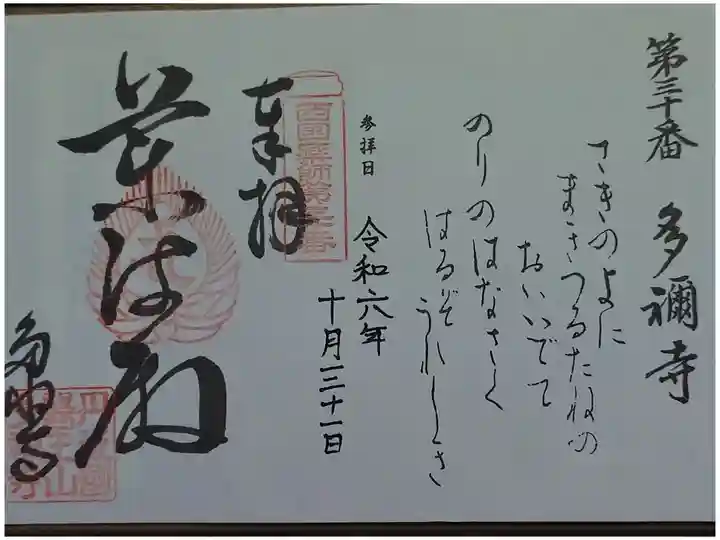 第三十番 多禰寺
さきのよに
まきつるたねの
おいいでて
のりのはなさく
はるぞうれしき
参拝日
令和六年
十月三十一日
西国薬師第三十番
奉拝
多禰寺